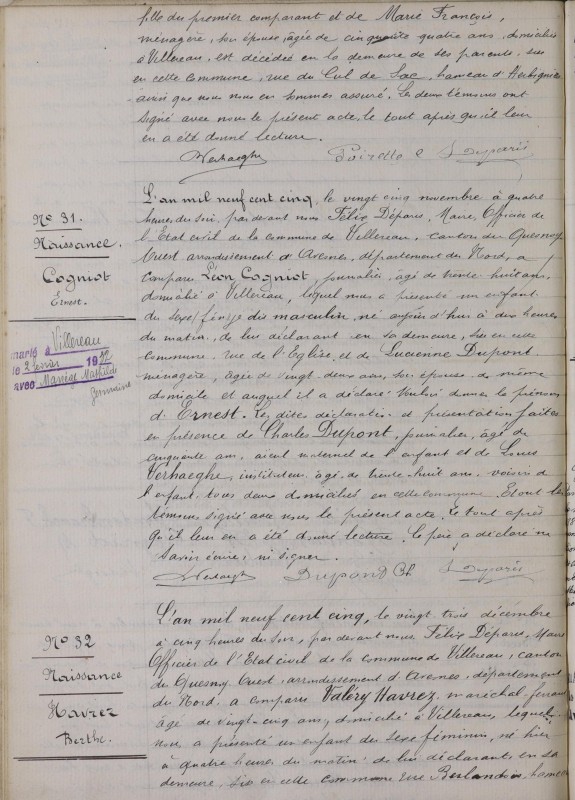 fille du premier comparant et de Marie François,
ménagère, son épouse, âgée de cinquante quatre ans, domiciliés
à Villereau, est décédée en la demeure de ses parents, sise
en cette commune, rue du Cul de Sac, hameau d'Herbignies
ainsi que nous nous en sommes assuré. Les deux témoins ont
signé avec nous le présent acte, le tout après qu'il leur
en a été donné lecture.
Verhaeghe
Déparis
No 31.
Naissance.
Cogniot
Ernest.
marié à Villereau
le 2 février 19
avec Mathilde
Germaine
L'an mil neuf cent cinq, le vingt cinq novembre à quatre
heures du soir, par devant nous Félix Déparis, Maire, Officier de
l'Etat civil de la commune de Villereau, canton du Quesnoy
Ouest arrondissement d'Avesnes, département du Nord, a
comparu Léon Cogniot, journalier, âgé de trente huit ans,
domicilié à Villereau, lequel nous a présenté un enfant
du sexe masculin, né aujourd'hui à deux heures
du matin, de lui déclarant en sa demeure, sise en cette
commune, rue de l'Eglise, et de Lucienne Dupont
ménagère, âgée de vingt deux ans, son épouse de même
domicile et auquel il a déclaré vouloir donner le prénom
d'Ernest. Les dites déclaration et présentation faites
en présence de Charles Dupont, journalier, âgé de
cinquante ans, aïeul maternel de l'enfant et de Louis
Verhaeghe, instituteur, âgé de trente huit ans, voisin de
l'enfant, tous deux domiciliés en cette commune. Et ont les
témoins signé avec nous le présent acte, le tout après
qu'il leur en a été donné lecture, le père a déclaré ne
savoir écrire, ni signer.
Verhaeghe Dupond Ch. Déparis
No 32
Naissance
Havrez
Berthe.
L'an mil neuf cent cinq, le vingt trois décembre
à cinq heures du soir, par devant nous Félix Déparis, Maire
Officier de l'Etat civil de la commune de Villereau, canton
du Quesnoy Ouest, arrondissement d'Avesnes, département
du Nord, a comparu Valéry Havrez, maréchal-ferrant
âgé de vingt-cinq ans, domicilié à Villereau, lequel
nous a présenté un enfant du sexe féminin, né hier
à quatre heures du matin, de lui déclarant en sa
demeure, sise en cette commune rue hameau